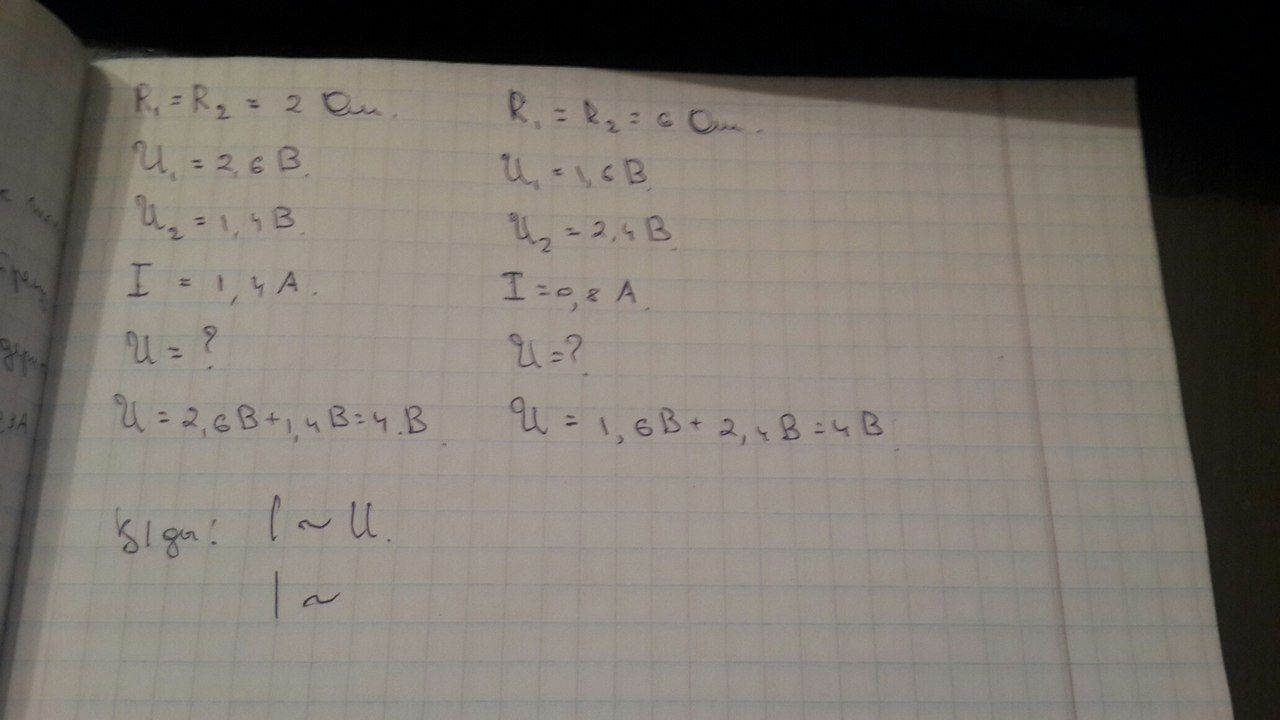 R₁ = R₂ = 2 Ом.
U₁ = 2,6 В.
U₂ = 1,4 В.
I = 1,4 А.
U = ?
U = 2,6В + 1,4В = 4.В.
R₁ = R₂ = 6 Ом.
U₁ = 1,6 В.
U₂ = 2,4 В.
I = 0,8 А.
U = ?
U = 1,6В + 2,4В = 4В.
I ~ U.
I ~